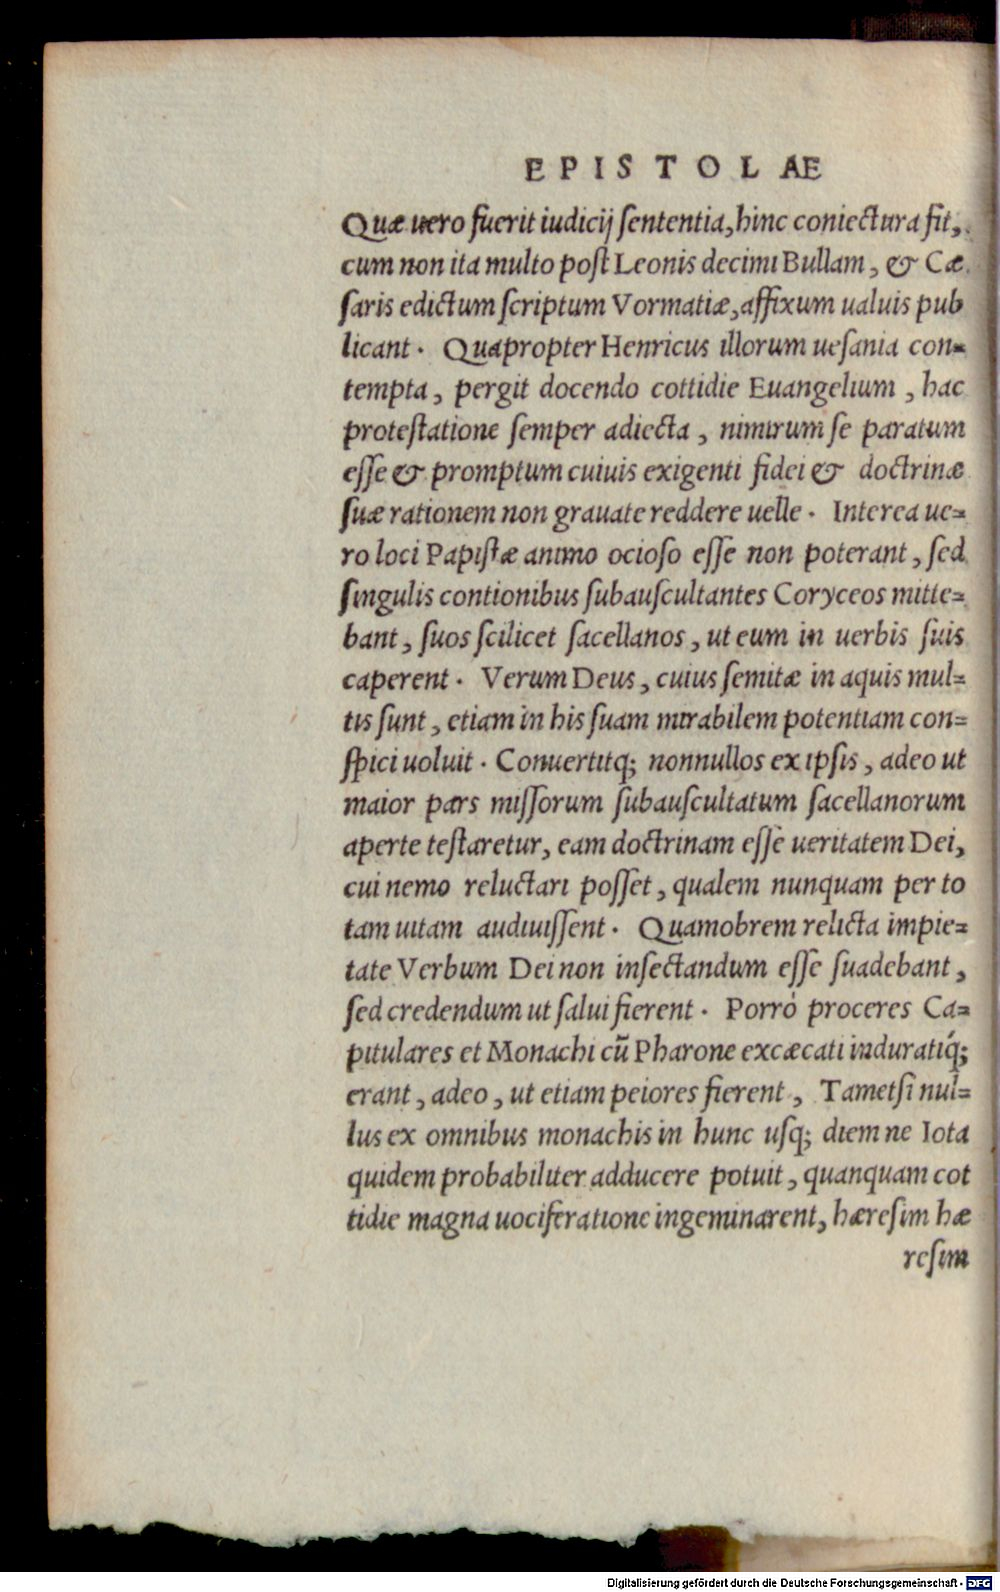 EPISTOLAE
Quæ uero fuerit iudicij ſententia, hinc coniectura fit,
cum non ita multo poſt Leonis decimi Bullam, & Cæ
ſaris edictum ſcriptum Vormatiæ, affixum ualuis pub
licant. Quapropter Henricus illorum ueſania con=
tempta, pergit docendo cottidie Euangelium, hac
proteſtatione ſemper adiecta, nimirum ſe paratum
eſſe & promptum cuiuis exigenti fidei & doctrinæ
ſuæ rationem non grauate reddere uelle. Interea ue=
ro loci Papiſtæ animo ocioſo eſſe non poterant, ſed
ſingulis contionibus ſubauſcultantes Coryceos mitte=
bant, ſuos ſcilicet ſacellanos, ut eum in uerbis ſuis
caperent. Verum Deus, cuius ſemitæ in aquis mul=
tis ſunt, etiam in his ſuam mirabilem potentiam con=
ſpici uoluit. Conuertitq; nonnullos ex ipſis, adeo ut
maior pars miſſorum ſubauſcultatum ſacellanorum
aperte teſtaretur, eam doctrinam eſſe ueritatem Dei,
cui nemo reluctari poſſet, qualem nunquam per to
tam uitam audiuiſſent. Quamobrem relicta impie=
tate Verbum Dei non inſectandum eſſe ſuadebant,
ſed credendum ut ſalui fierent. Porró proceres Ca=
pitulares et Monachi cũ Pharone excæcati induratiq́;
erant, adeo, ut etiam peiores fierent, Tametſi nul=
lus ex omnibus monachis in hunc uſq; diem ne Iota
quidem probabiliter adducere potuit, quanquam cot
tidie magna uociferatione ingeminarent, hæreſim hæ
reſim
Digitalisierung gefördert durch die Deutsche Forschungsgemeinschaft - DFG